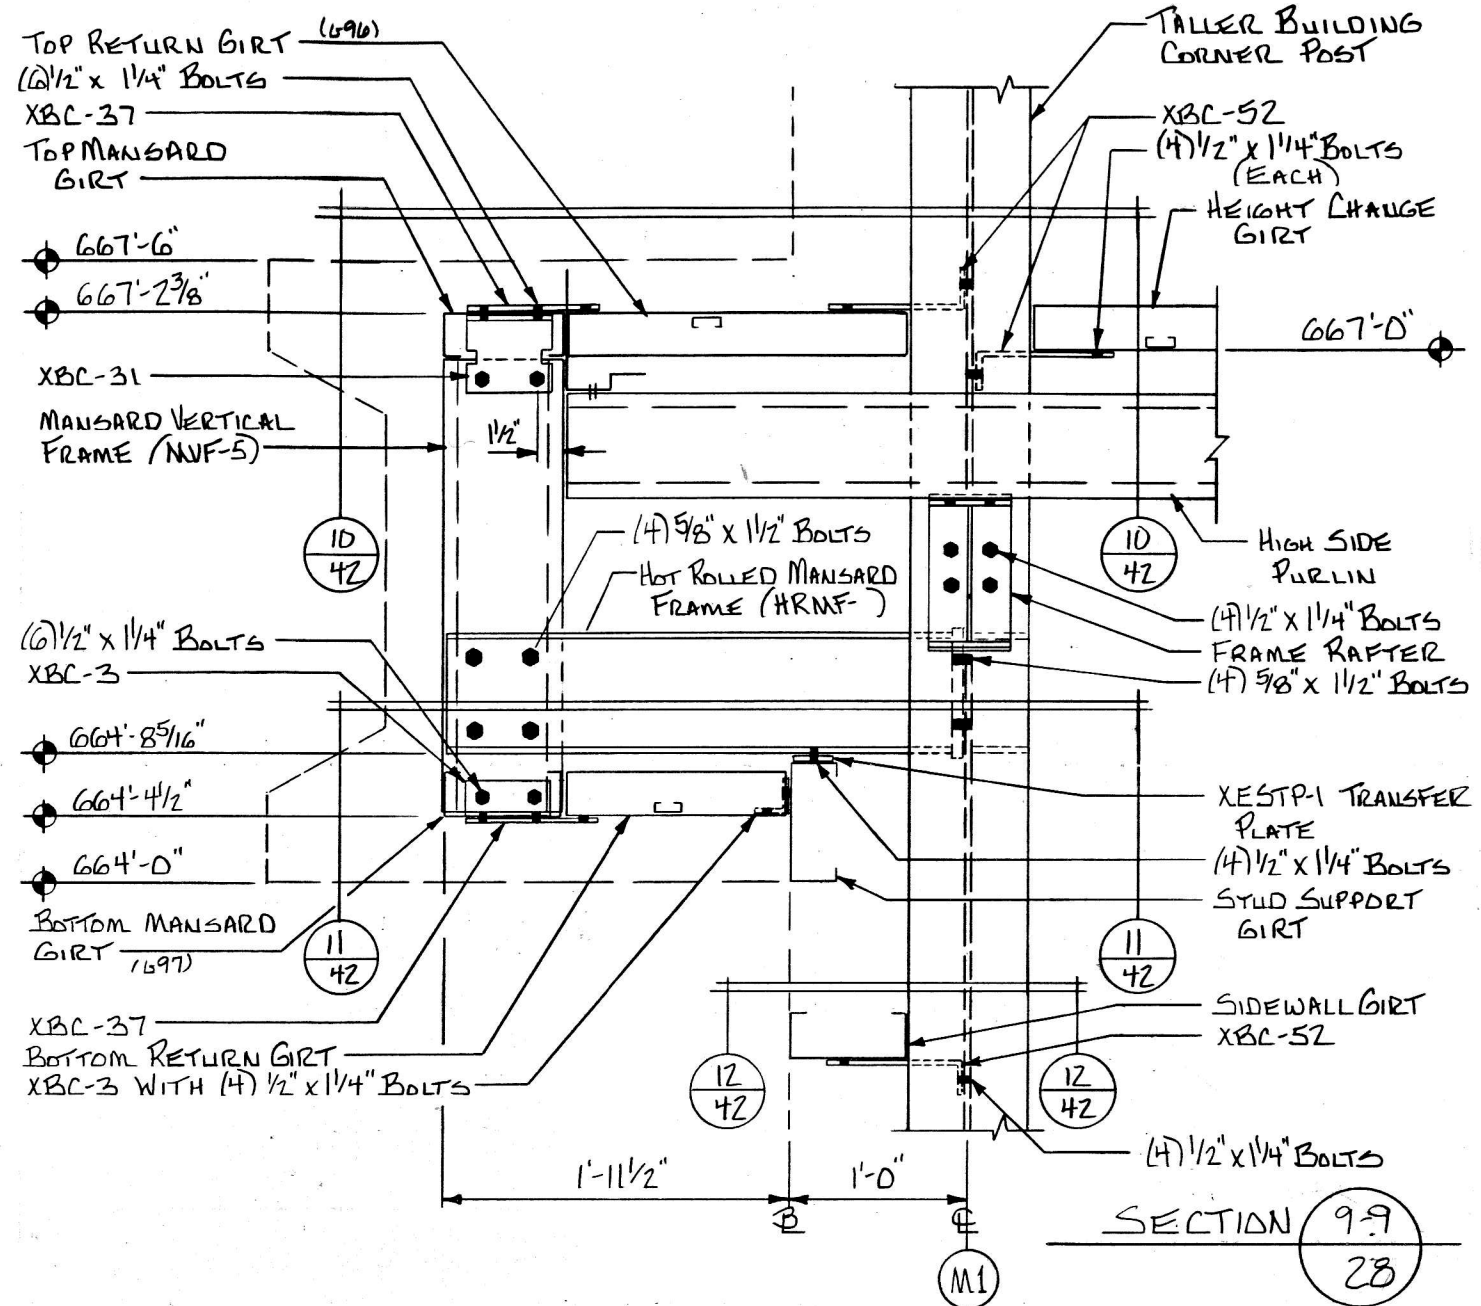 TOP RETURN GIRT (G96)
(6) 1/2" x 1 1/4" BOLTS
XBC-37
TOP MANSARD
GIRT
667'-6"
667'-2 3/8"
XBC-31
MANSARD VERTICAL
FRAME (MVF-5)
1 1/2"
10
42
(6) 1/2" x 1 1/4" BOLTS
XBC-3
664'-8 5/16"
664'-4 1/2"
664'-0"
BOTTOM MANSARD
GIRT (G97)
11
42
XBC-37
BOTTOM RETURN GIRT
XBC-3 WITH (4) 1/2" x 1 1/4" BOLTS
(4) 5/8" x 1 1/2" BOLTS
HOT ROLLED MANSARD
FRAME (HRMF- )
TALLER BUILDING
CORNER POST
XBC-52
(4) 1/2" x 1 1/4" BOLTS
(EACH)
HEIGHT CHANGE
GIRT
667'-0"
10
42
HIGH SIDE
PURLIN
(4) 1/2" x 1 1/4" BOLTS
FRAME RAFTER
(4) 5/8" x 1 1/2" BOLTS
XESTP-1 TRANSFER
PLATE
(4) 1/2" x 1 1/4" BOLTS
STUD SUPPORT
GIRT
11
42
SIDEWALL GIRT
XBC-52
12
42
12
42
(4) 1/2" x 1 1/4" BOLTS
1'-11 1/2"
1'-0"
B
M1
SECTION 9-9
28